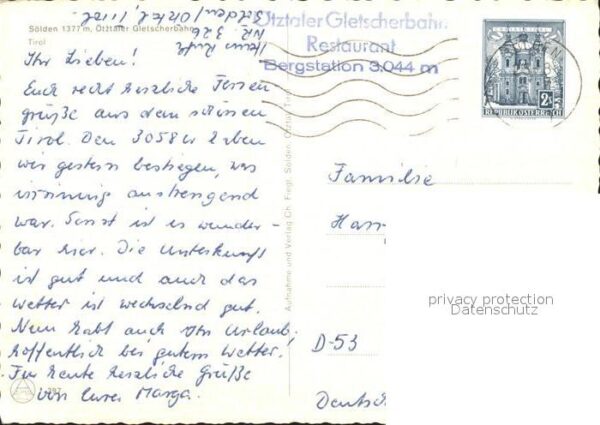 Sölden 1377 m, Ötztaler Gletscherbahn
Tirol
Ihr Lieben!
Euch recht herzliche Ferien
grüße aus dem schönen
Tirol. Den 3058er haben
wir gestern bestiegen, was
anstrengend
war. Sonst ist es wunder-
bar hier. Die Unterkunft
ist gut und auch das
Wetter ist wechselnd gut.
Nun habt auch Ihr Urlaub,
hoffentlich bei gutem Wetter.
Für heute herzliche Grüße
von Eurer Marga.
397
Aufnahme und Verlag Ch. Fiegl Sölden Ötztal Tirol
Ötztaler Gletscherbahn
Restaurant
Bergstation 3.044 m
2S
REPUBLIK ÖSTERREICH
Familie
Han
D-53
Deutsc
privacy protection
Datenschutz